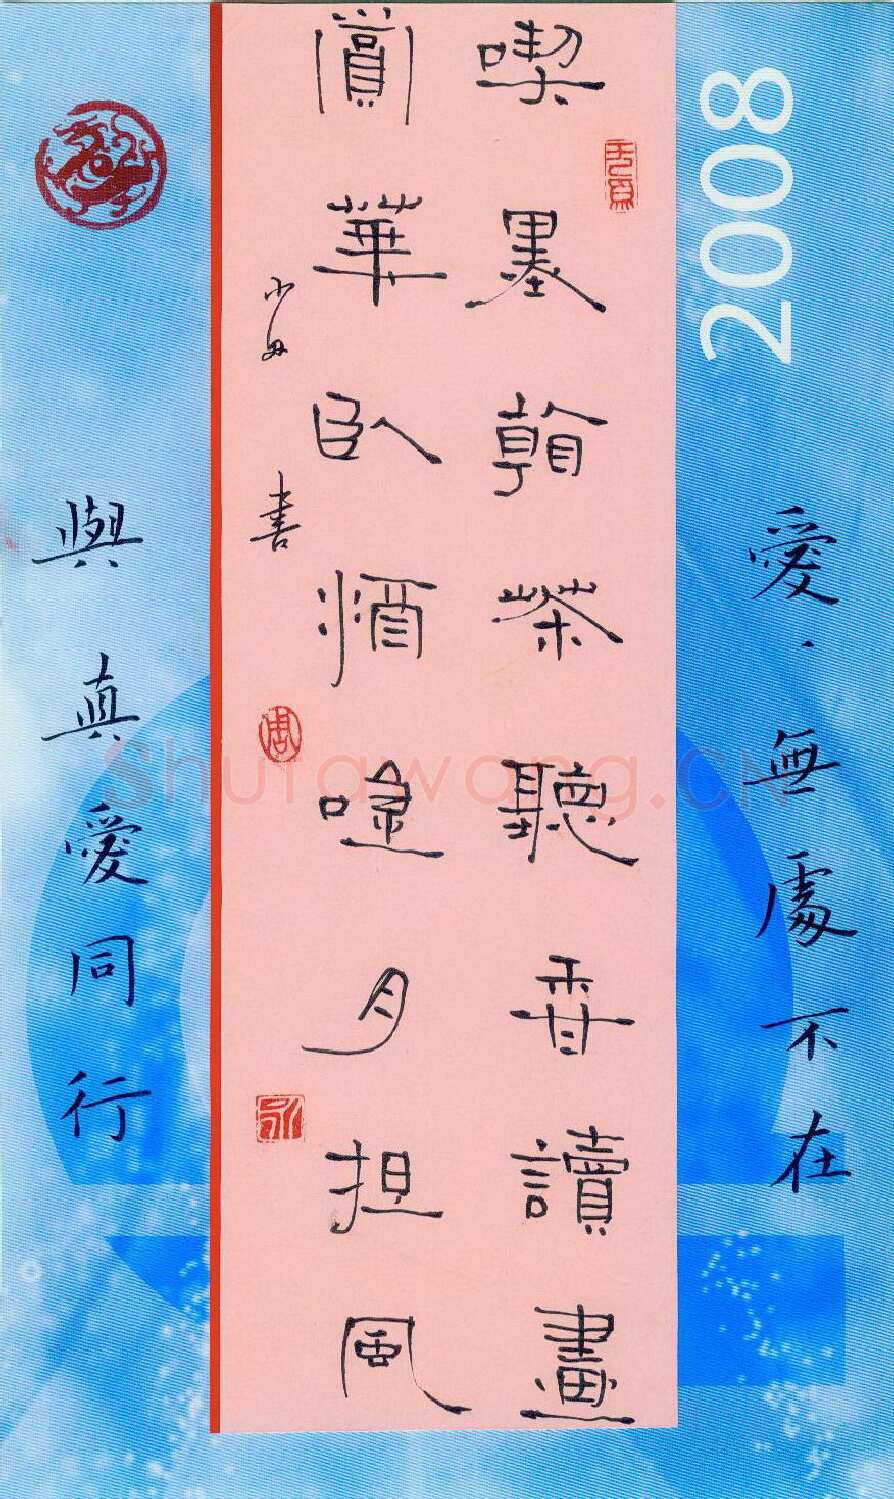 2008
愛·無處不在
喫墨看茶聽香讀畫
賞華臥酒唫月担風
書
周
與真愛同行
Shufawang.CN